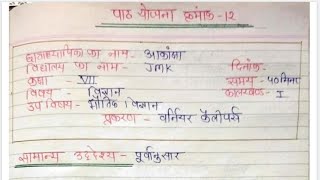 पाठ योजना क्रमांक-12
छात्राध्यापिका का नाम- आकांक्षा
विद्यालय का नाम- JMK दिनांक-
कक्षा - VII समय - 40 मिनट
विषय - विज्ञान कालखण्ड- I
उप विषय - भौतिक विज्ञान
प्रकरण - वर्नियर कैलीपर्स
सामान्य उद्देश्य - पूर्वानुसार